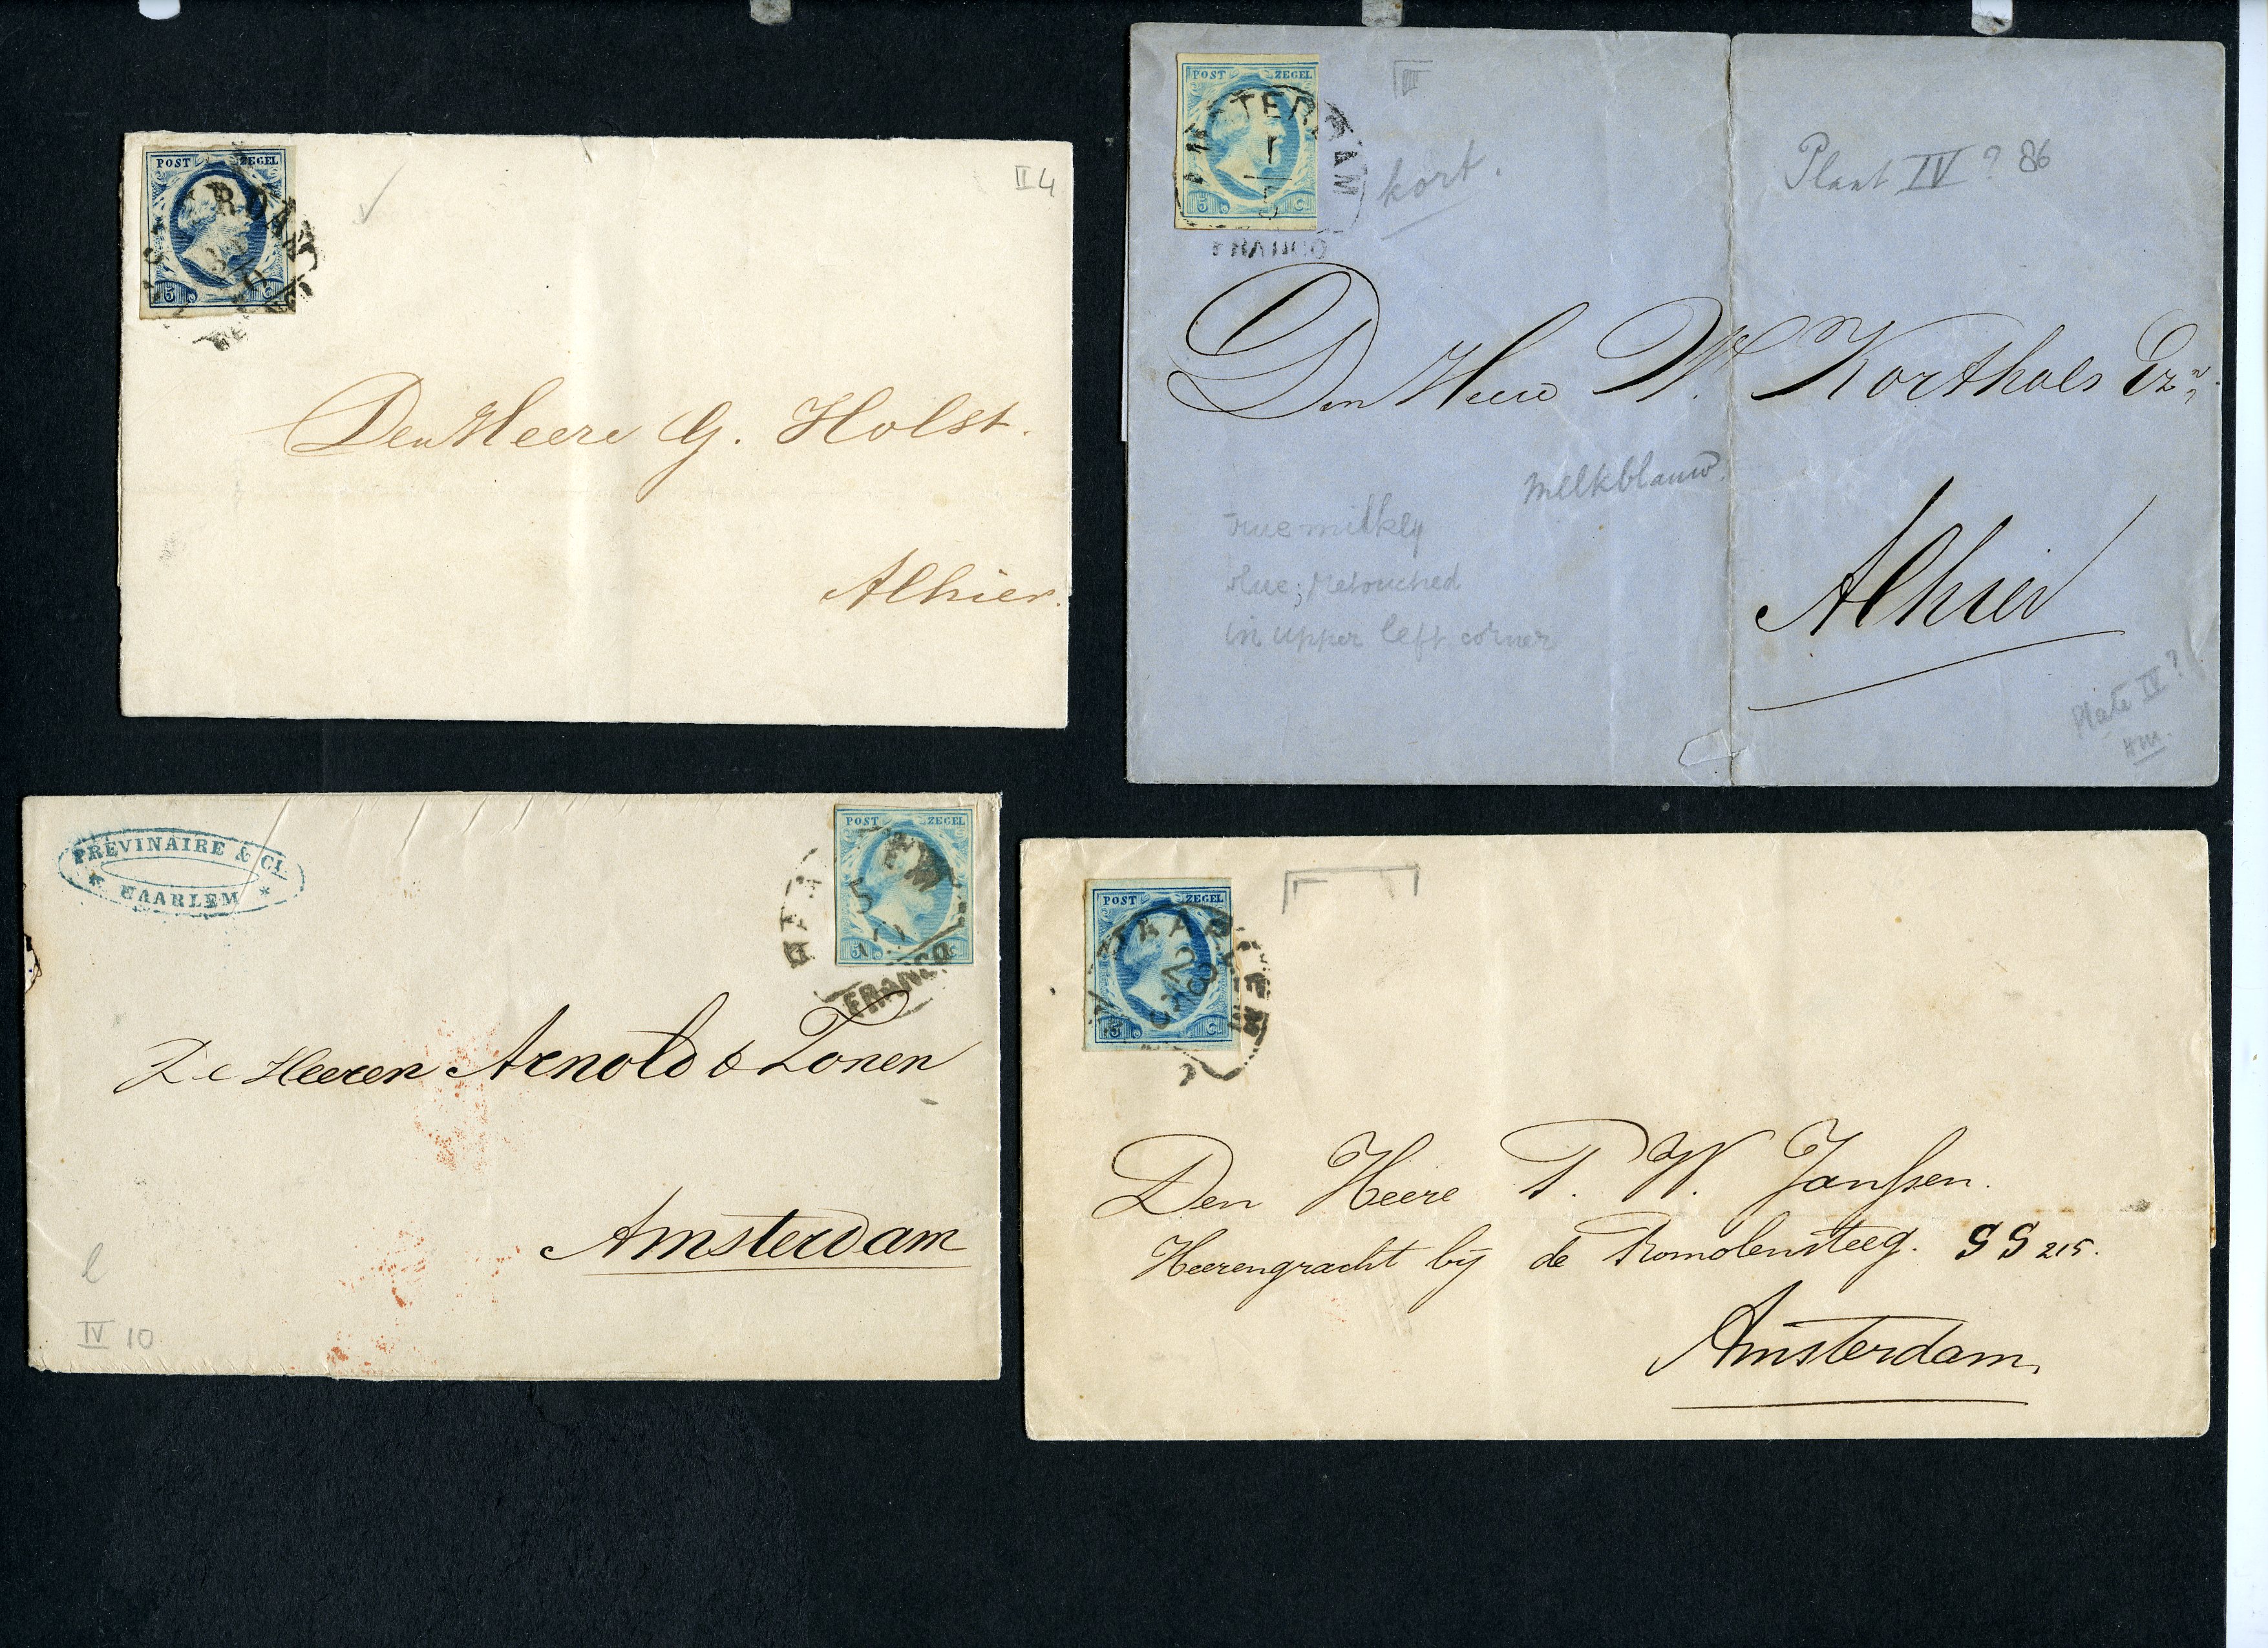 POST ZEGEL
5 C.
II 4
Den Heere G. Holst.
Alhier.
POST ZEGEL
AMSTERDAM
1
5
5 C.
FRANCO
III
kort.
Plaat IV? 86
Den Heer W. Korthals Ezn.
melkblauw.
true milky
blue; retouched
in upper left corner
Alhier
Plate IV?
PREVINAIRE & CI.
* HAARLEM *
POST ZEGEL
5
10
5 C.
FRANCO
De Heeren Arnold & Zonen
Amsterdam
IV 10
POST ZEGEL
HAARLEM
5 C.
Den Heere P. W. Janssen.
Heerengracht bij de Romolensteeg. SS 215.
Amsterdam